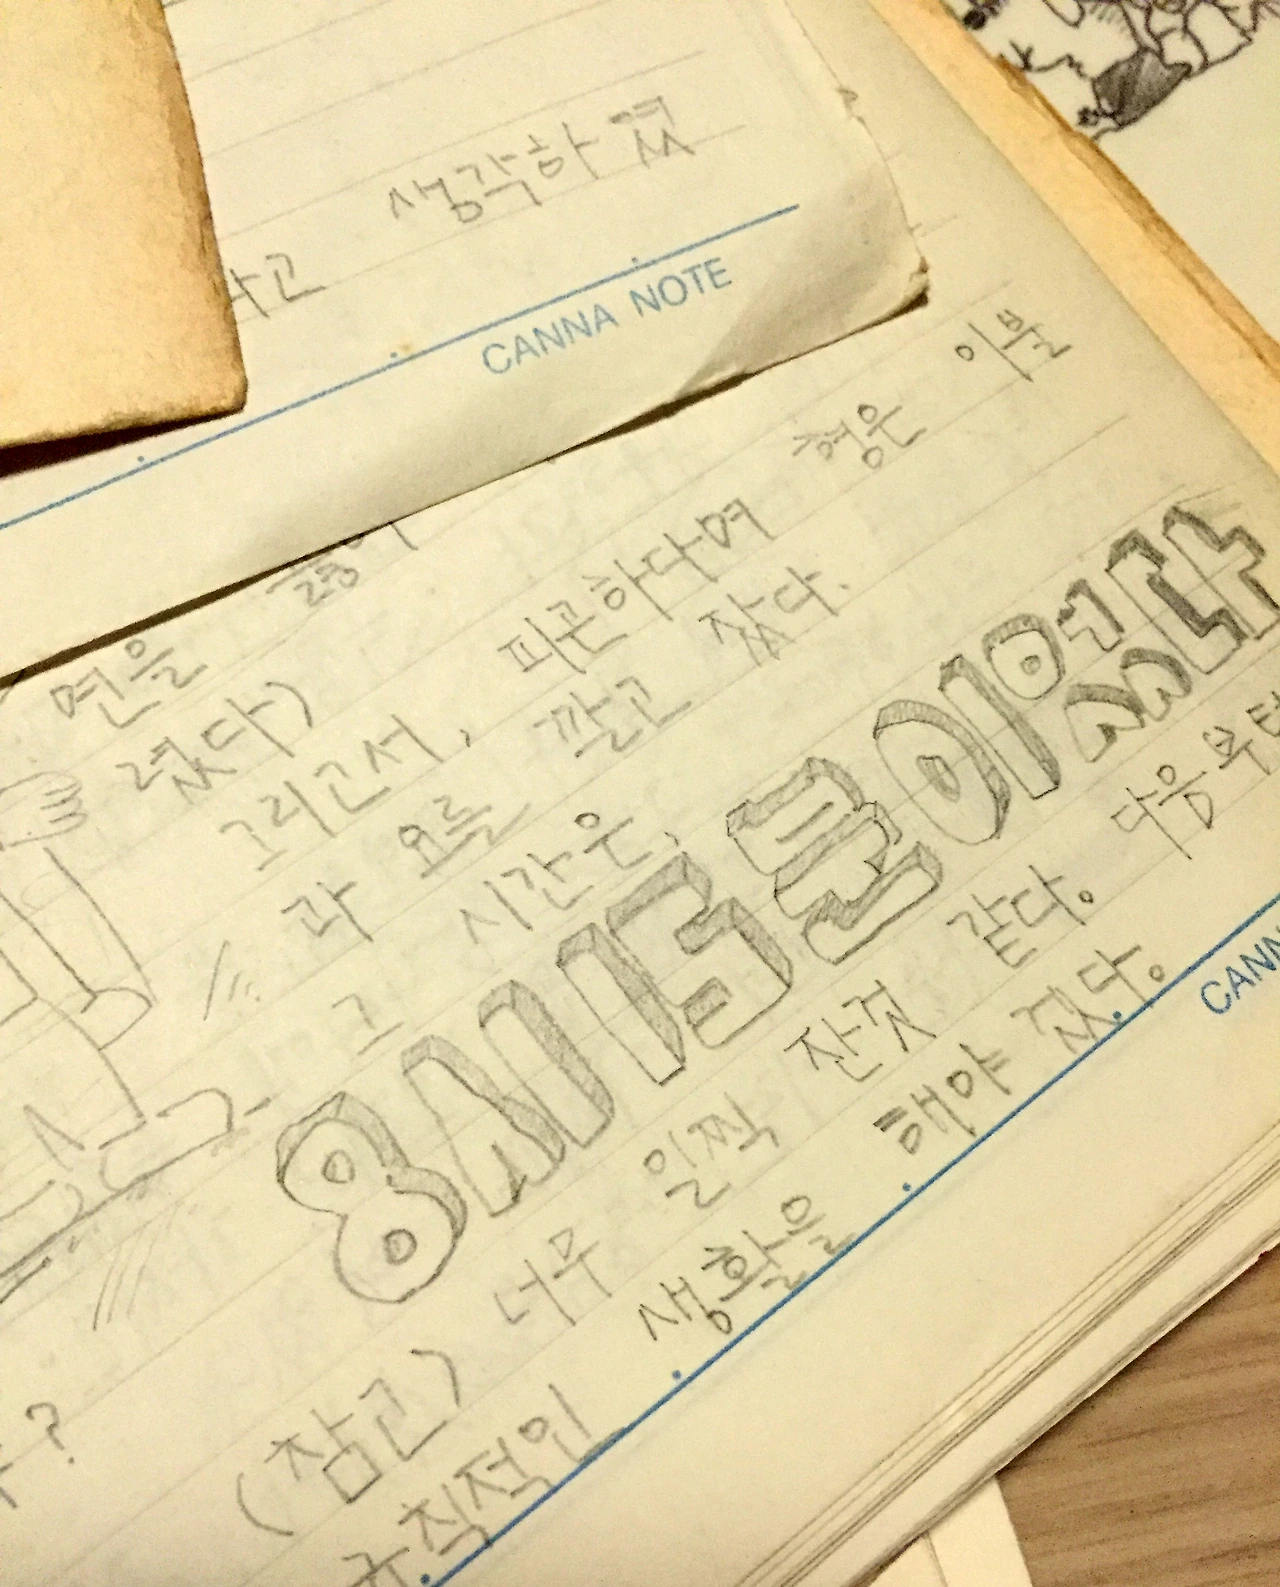 생각하겠
고
CANNA NOTE
연을
렸다)
그리고서, 피곤하다며 형은 이불
과 요를 깔고 잤다.
그 시간은,
8시더쯤이었다
(참고) 너무 일찍 잔것 같다. 다음부터
규칙적인 생활을 해야 겠다.
CANN
?